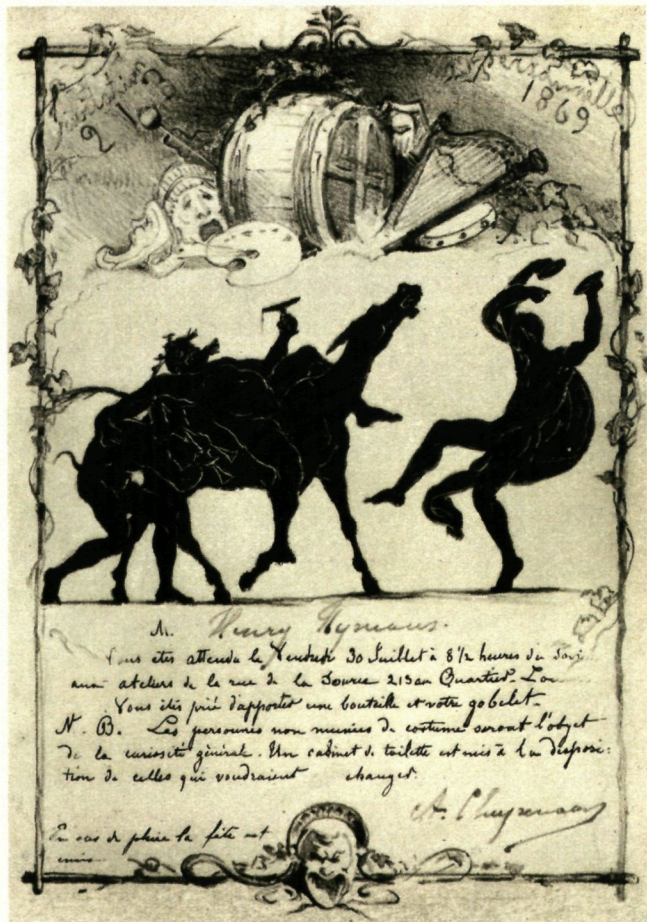 Invitation
personnelle
1869
M. Henry Hymans.
Vous êtes attendu le Vendredi 30 Juillet à 8 1/2 heures du Soir
aux ateliers de la rue de la Source 213 au Quartier-
Vous êtes prié d'apporter une bouteille et votre gobelet.
N. B. Les personnes non munies de costume seront l'objet
de la curiosité général. Un cabinet de toilette est mis à la disposi:
tion de celles qui voudraient changer.
En cas de pluie la fête est